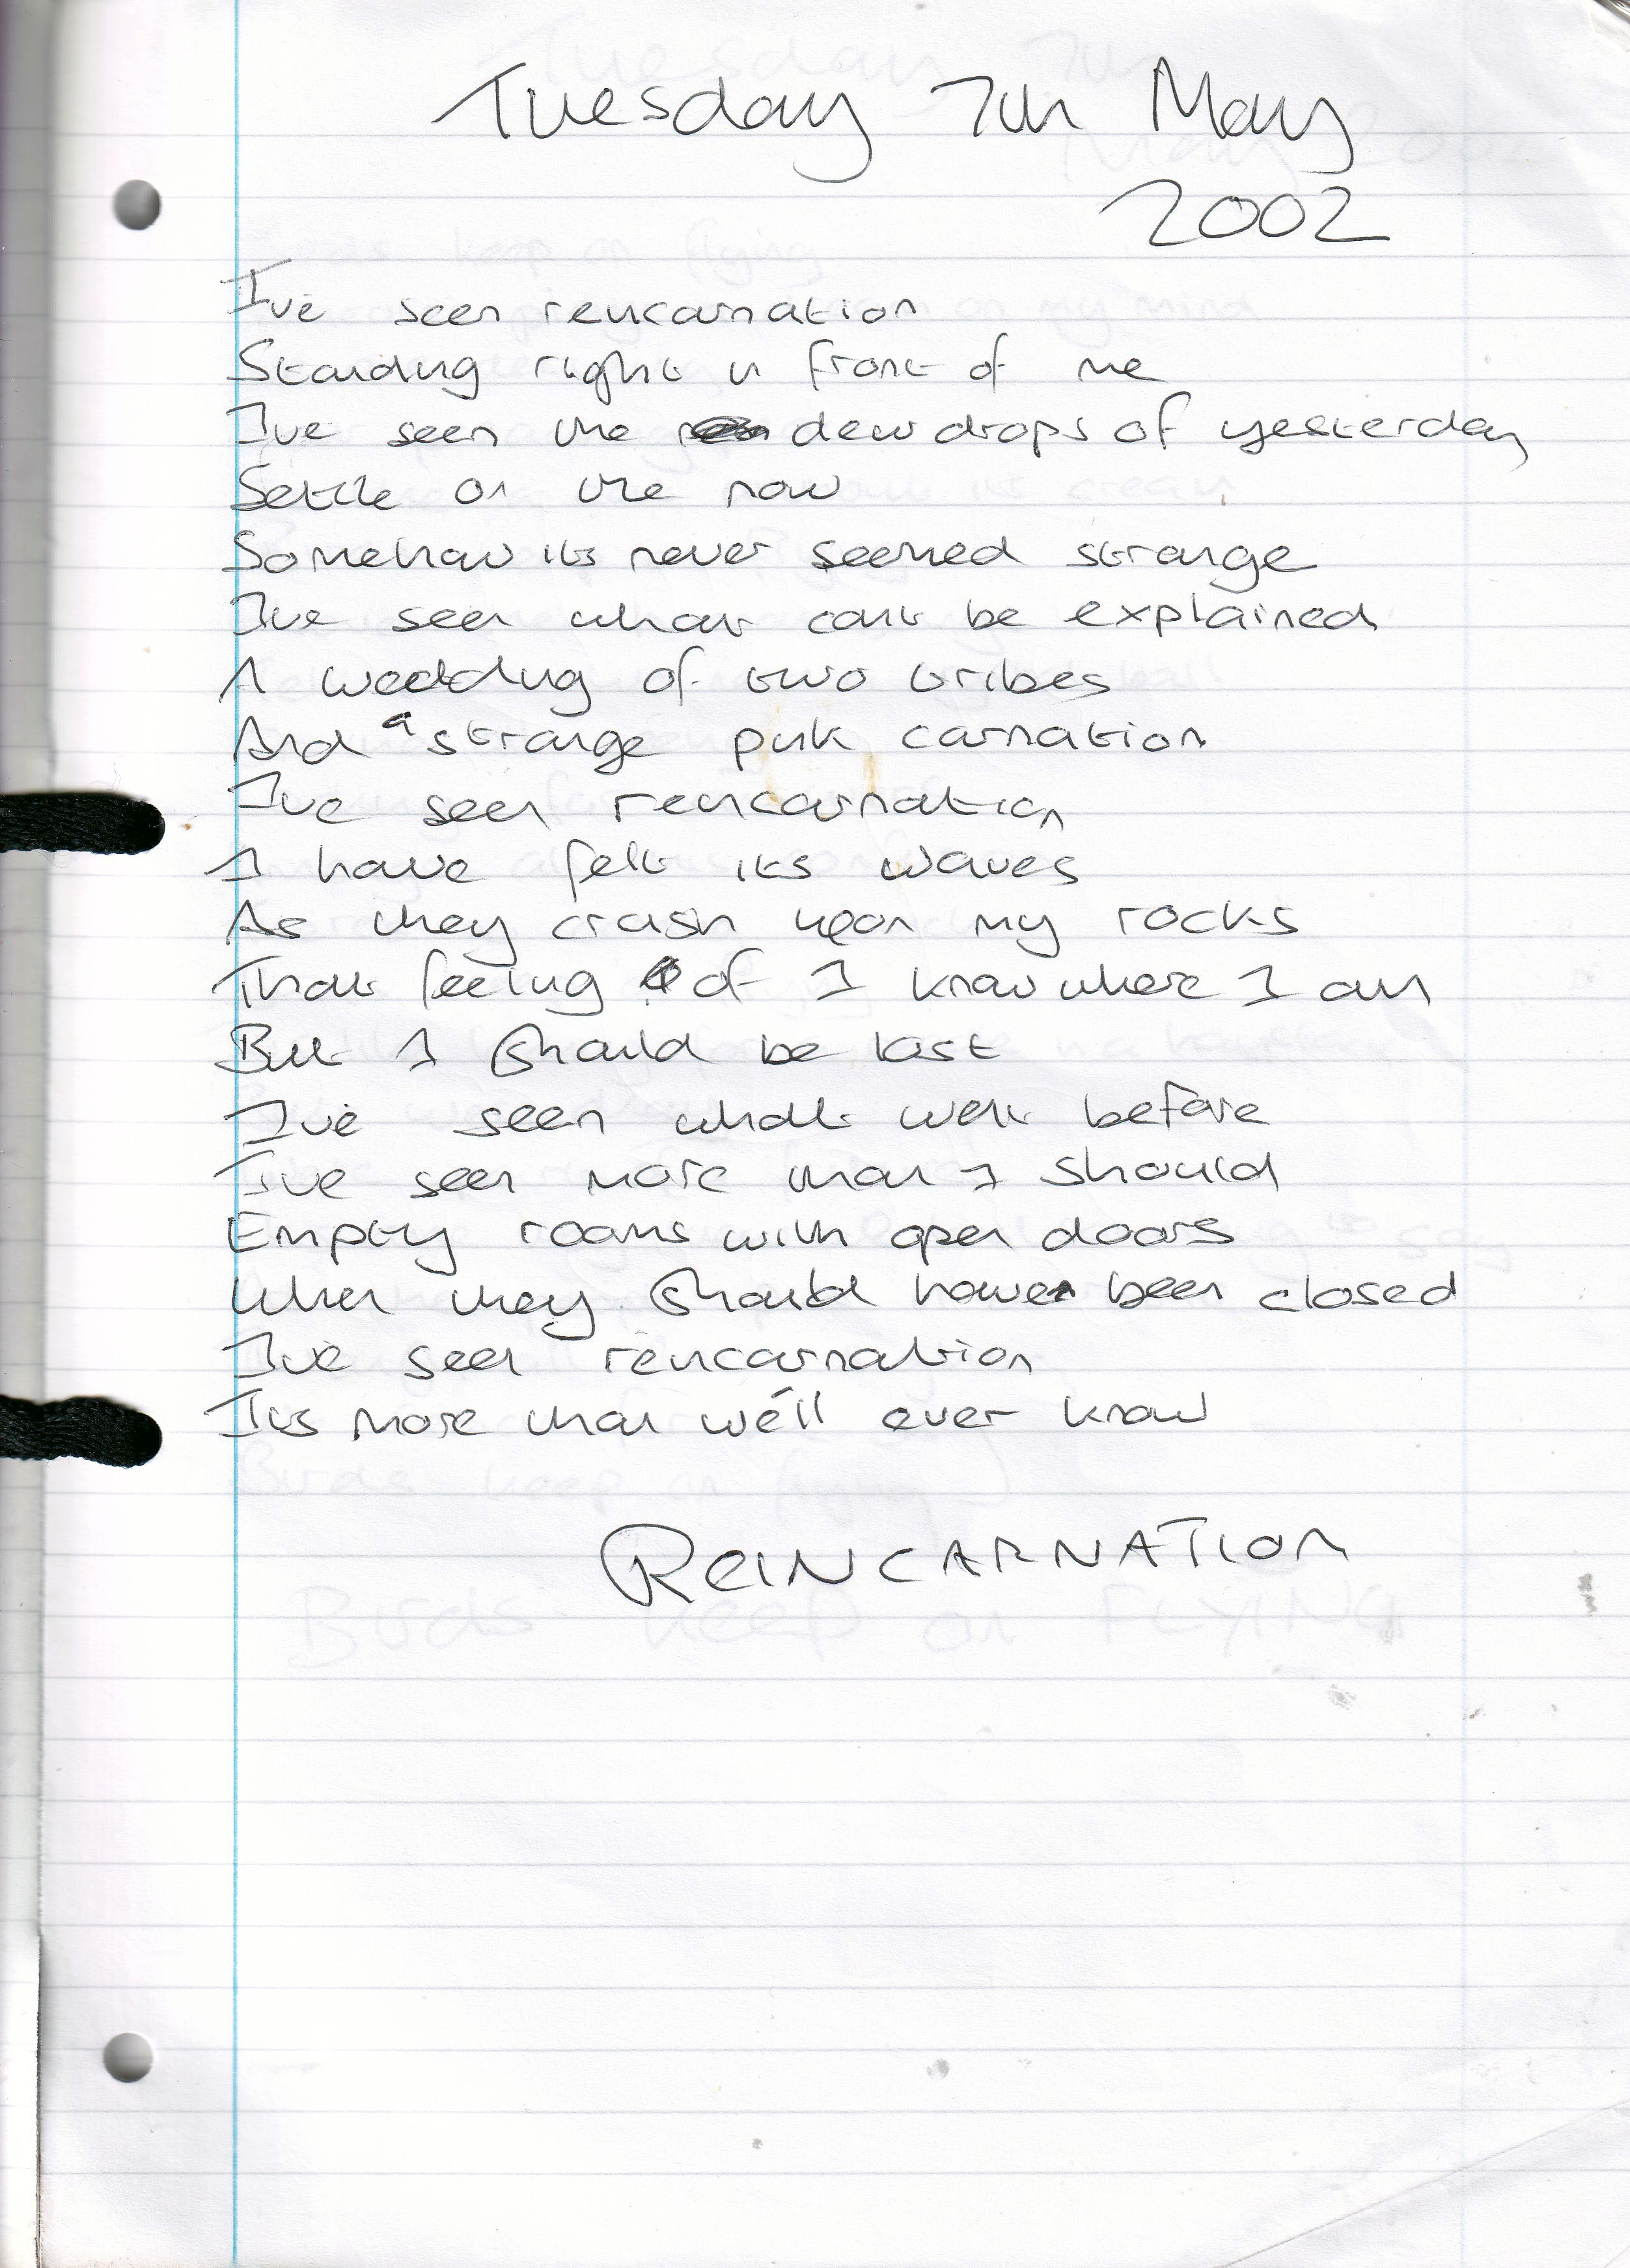 Tuesday 7th May
2002
I've seen reincarnation
Standing right in front of me
I've seen the dewdrops of yesterday
Settle on the now
Somehow its never seemed strange
I've seen what cant be explained
A wedding of two tribes
And a strange pink carnation
I've seen reincarnation
I have felt its waves
As they crash upon my rocks
That feeling of I know where I am
But I should be lost
I've seen what went before
I've seen more than I should
Empty rooms with open doors
When they should have been closed
I've seen reincarnation
Its more than we'll ever know
REINCARNATION
Birds keep on FLYING